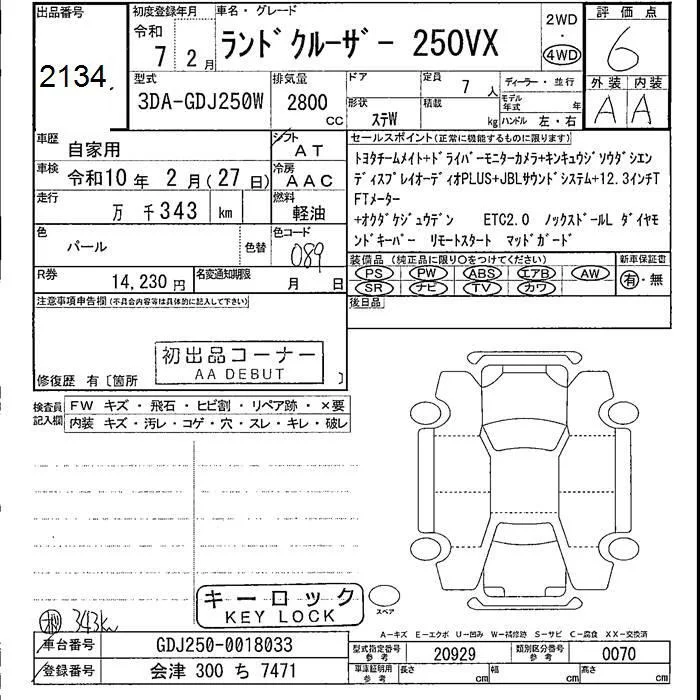 出品番号
2134.
初度登録年月
令和
7 2月
車名・グレード
ランドクルーザー 250VX
2WD
4WD
評価点
6
外装 内装
A A
型式
3DA-GDJ250W
排気量
2800
CC
ドア
形状
ステW
定員
7 人
積載
kg
ディーラー・並行
モデル年式 年
ハンドル 左・右
車歴
自家用
シフト
AT
車検
令和10年 2月(27日)
冷房
AAC
走行
万 千343 km
燃料
軽油
色
パール
色替
色コード
089
R券
14,230円
名変通知期限
月 日
セールスポイント(正常に機能するものに限ります)
トヨタチームメイト+ドライバーモニターカメラ+キンキュウジソウダシエン
ディスプレイオーディオPLUS+JBLサウンドシステム+12.3インチT
FTメーター
+オクダケジュウデン ETC2.0 ノックスドールL ダイヤモ
ンドキーパー リモートスタート マッドガード
装備品(純正品に限り○をつけてください)
PS PW ABS エアB AW
SR ナビ TV カワ
新車保証書
有・無
後日品
注意事項申告欄(不具合内容等は具体的に記入して下さい)
初出品コーナー
AA DEBUT
修復歴 有〔箇所 〕
検査員記入欄
FW キズ・飛石・ヒビ割・リペア跡・×要
内装 キズ・汚レ・コゲ・穴・スレ・キレ・破レ
キーロック
KEY LOCK
スペア
343km
A-キズ E-エクボ U-凹み W-補修跡 S-サビ C-腐食 XX-交換済
車台番号
GDJ250-0018033
登録番号
会津 300 ち 7471
型式指定番号
参考
20929
類別区分番号
参考
0070
車庫証明用
参考
長さ cm 幅 cm 高さ cm